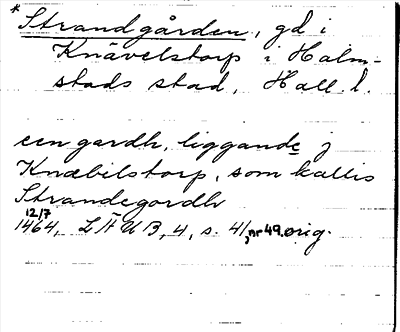 *Strandgården, gd i
Knävelstorp i Halm-
stads stad, Hall. l.
een gardh, liggande j
Knæbilstorp, som kallis
Strandegordh
12/7
1464, LÄUB, 4, s. 41, nr 49. orig.